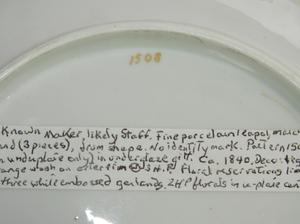 1508
Known Maker, likely Staff. Fine porcelain teapot,
and (3 pieces), drum shape. No identity mark. Pattern 150
underplate only) in underglaze gilt. Ca. 1840. Deco:
orange wash on exterior H.P. Floral reservations
three white embossed garlands. 2 H.P. florals in u-plate